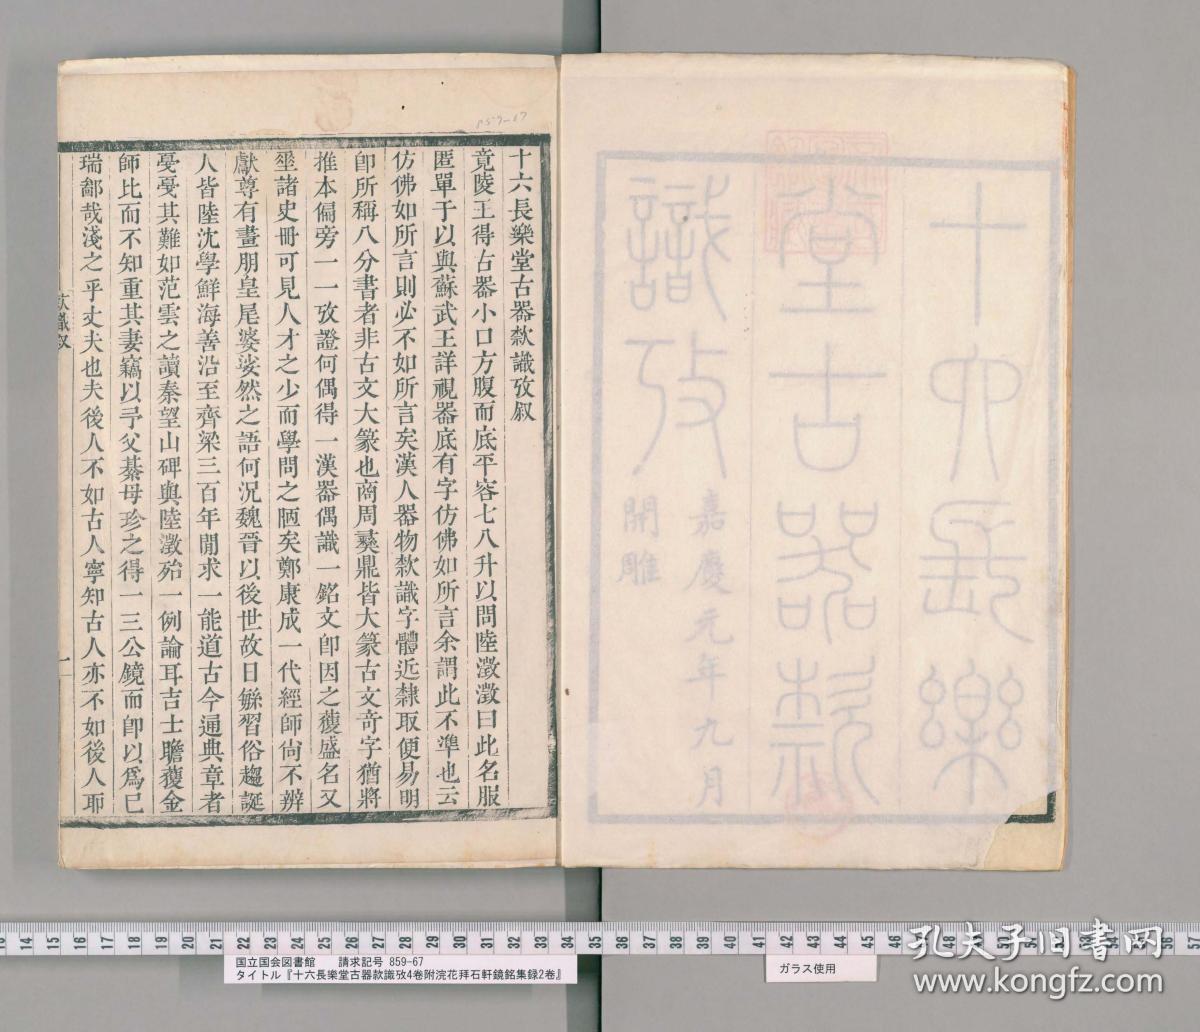 十六長樂
堂古器款
識攷
嘉慶元年九月
開雕
859-67
十六長樂堂古器欵識攷叙
竟陵王得古器小口方腹而底平容七八升以問陸澂澂曰此名服
匿單于以與蘇武王詳視器底有字仿佛如所言余謂此不準也云
仿佛如所言則必不如所言矣漢人器物欵識字體近隸取便易明
卽所稱八分書者非古文大篆也商周彝鼎皆大篆古文奇字猶將
推本偏旁一一攷證何偶得一漢器偶識一銘文卽因之獲盛名又
埀諸史冊可見人才之少而學問之陋矣鄭康成一代經師尙不辨
獻尊有畫朋皇尾婆娑然之語何況魏晉以後世故日緐習俗趨誕
人皆陸沈學鮮海善沿至齊梁三百年閒求一能道古今通典章者
戞戞其難如范雲之讀秦望山碑與陸澂殆一例論耳吉士瞻獲金
師比而不知重其妻竊以予父綦母珍之得一三公鏡而卽以爲己
瑞鄙哉淺之乎丈夫也夫後人不如古人寧知古人亦不如後人耶
欵識叙
一
13 14 15 16 17 18 19 20 21 22 23 24 25 26 27 28 29 30 31 32 33 34 35 36 37 38 39 40 41 42 43 44 45 46 47 48 49 50 51 52 53 54 55 56 57
国立国会図書館 請求記号 859-67
タイトル『十六長樂堂古器款識攷4巻附浣花拜石軒鏡銘集録2巻』
ガラス使用
孔夫子旧书网
www.kongfz.com